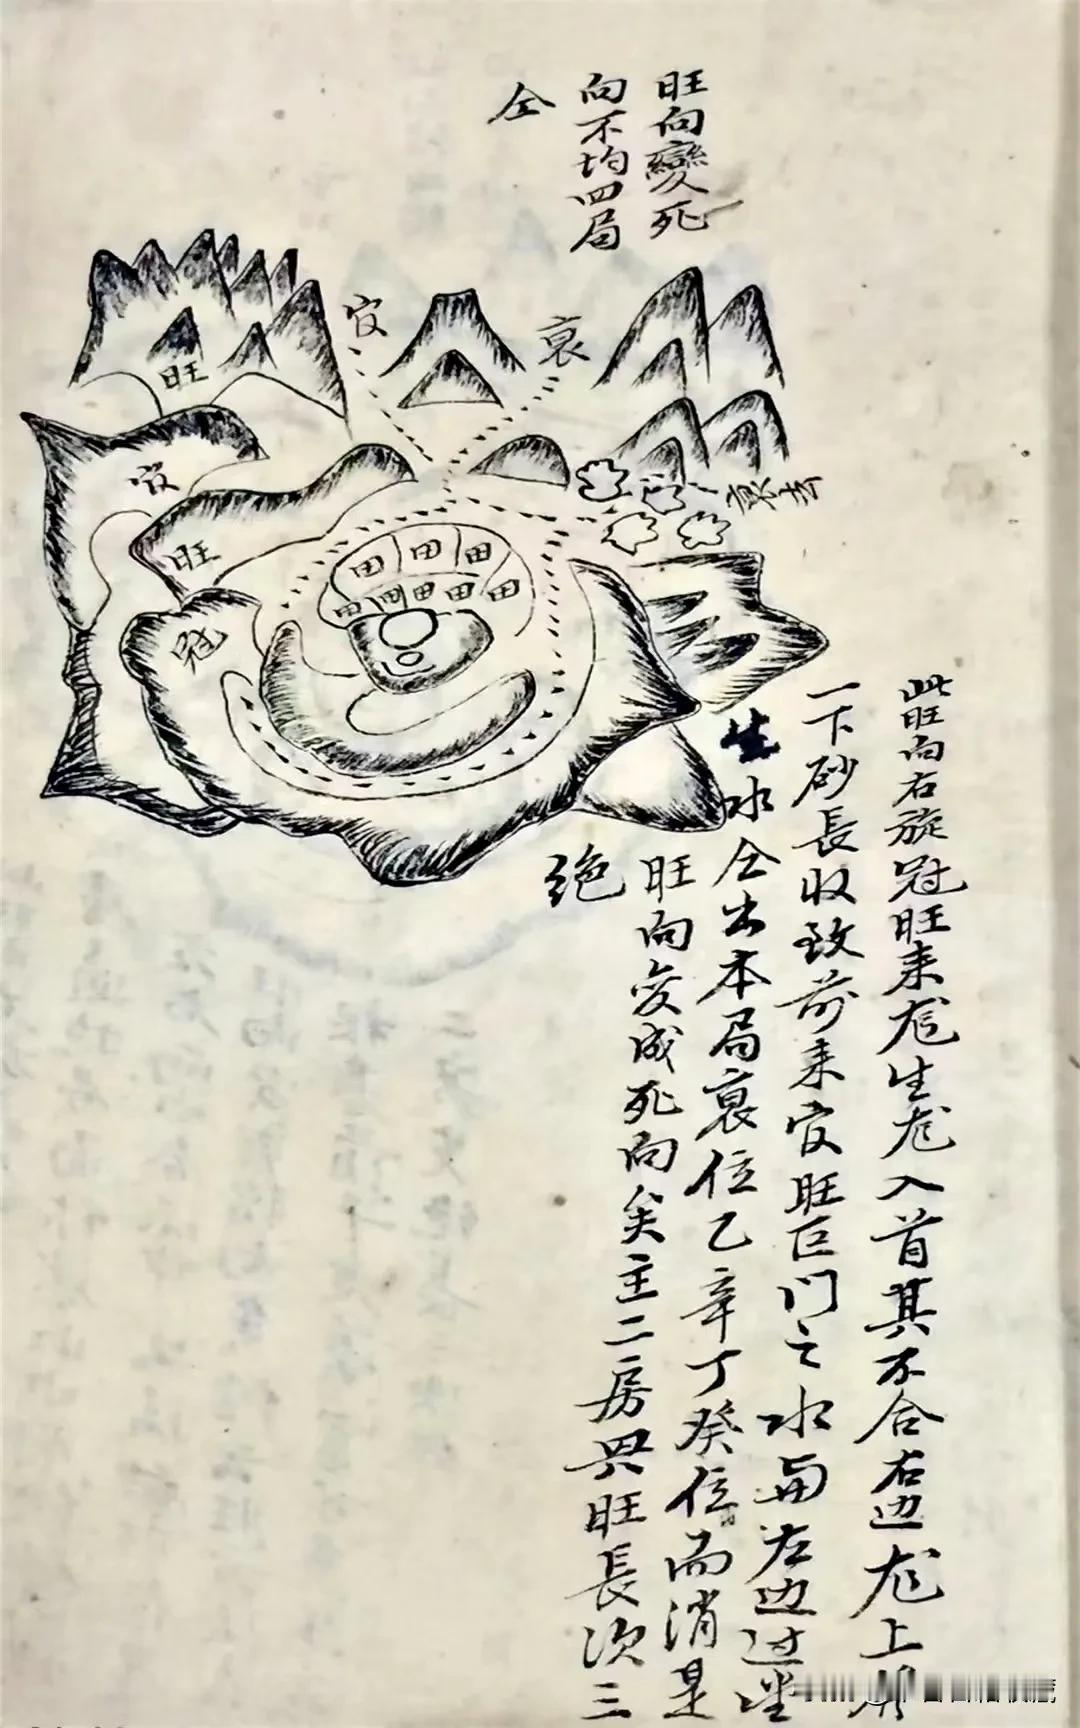 旺向變死
向不均四局
仝
官
衰
旺
官
旺
冠
田田田
田田田田田
生
此旺向右旋冠旺来龙生龙入首其不合右边龙上前
一下砂長收致前来官旺巨门之水與左边过堂
水仝出本局衰位乙辛丁癸位而消是
旺向変成死向矣主二房興旺長次三
绝